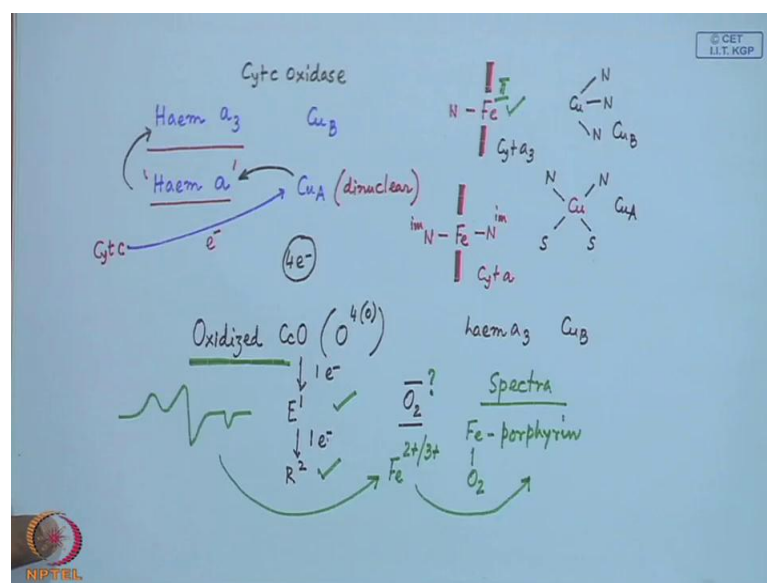 © CET
I.I.T. KGP
Cytc Oxidase
Haem a3
CuB
'Haem a'
CuA (dinuclear)
Cytc
e-
4e-
N - Fe
II
✓
Cyta3
N
Cu - N
N CuB
im N - Fe - N im
Cyta
N N
Cu CuA
S S
Oxidized CcO (O4(0))
haem a3 CuB
↓ 1e-
E1 ✓
↓ 1e-
R2 ✓
O2 ?
Fe2+/3+
Spectra
Fe - porphyrin
O2
NPTEL